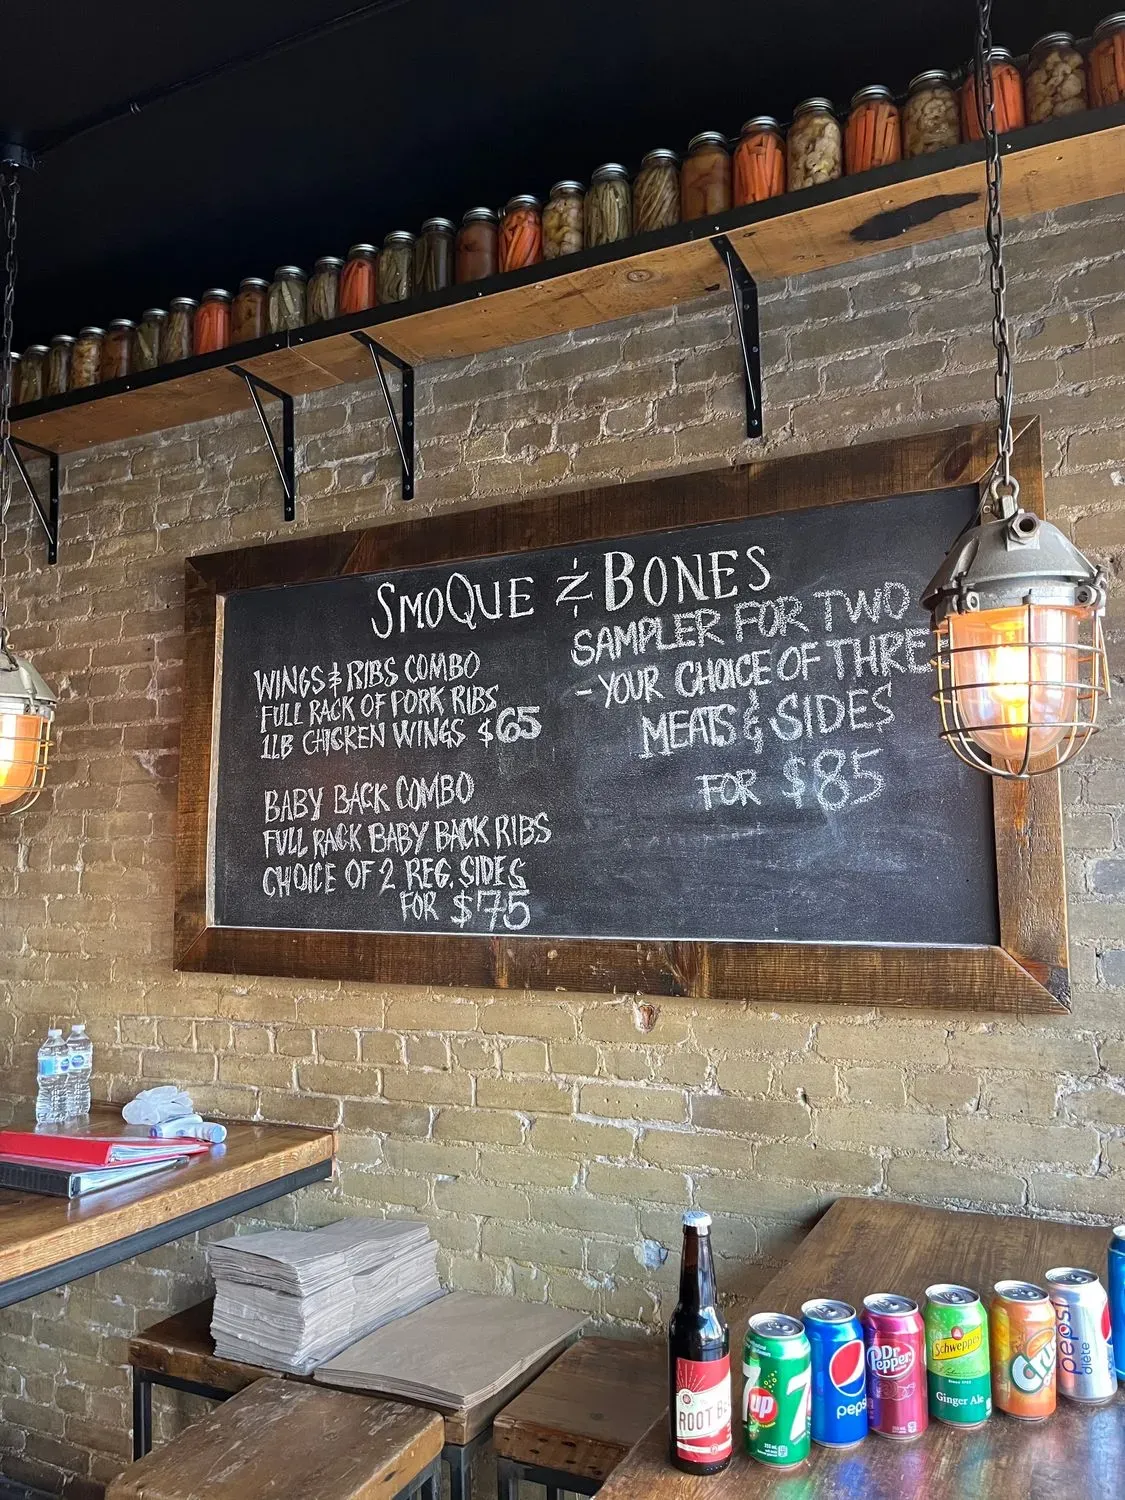 SMOQUE & BONES
WINGS & RIBS COMBO
FULL RACK OF PORK RIBS
1LB CHICKEN WINGS $65
BABY BACK COMBO
FULL RACK BABY BACK RIBS
CHOICE OF 2 REG. SIDES
FOR $75
SAMPLER FOR TWO
- YOUR CHOICE OF THREE
MEATS & SIDES
FOR $85
ROOT
7up
7
pepsi
Dr Pepper
Schweppes
Ginger Ale
Crush
pepsi
diète